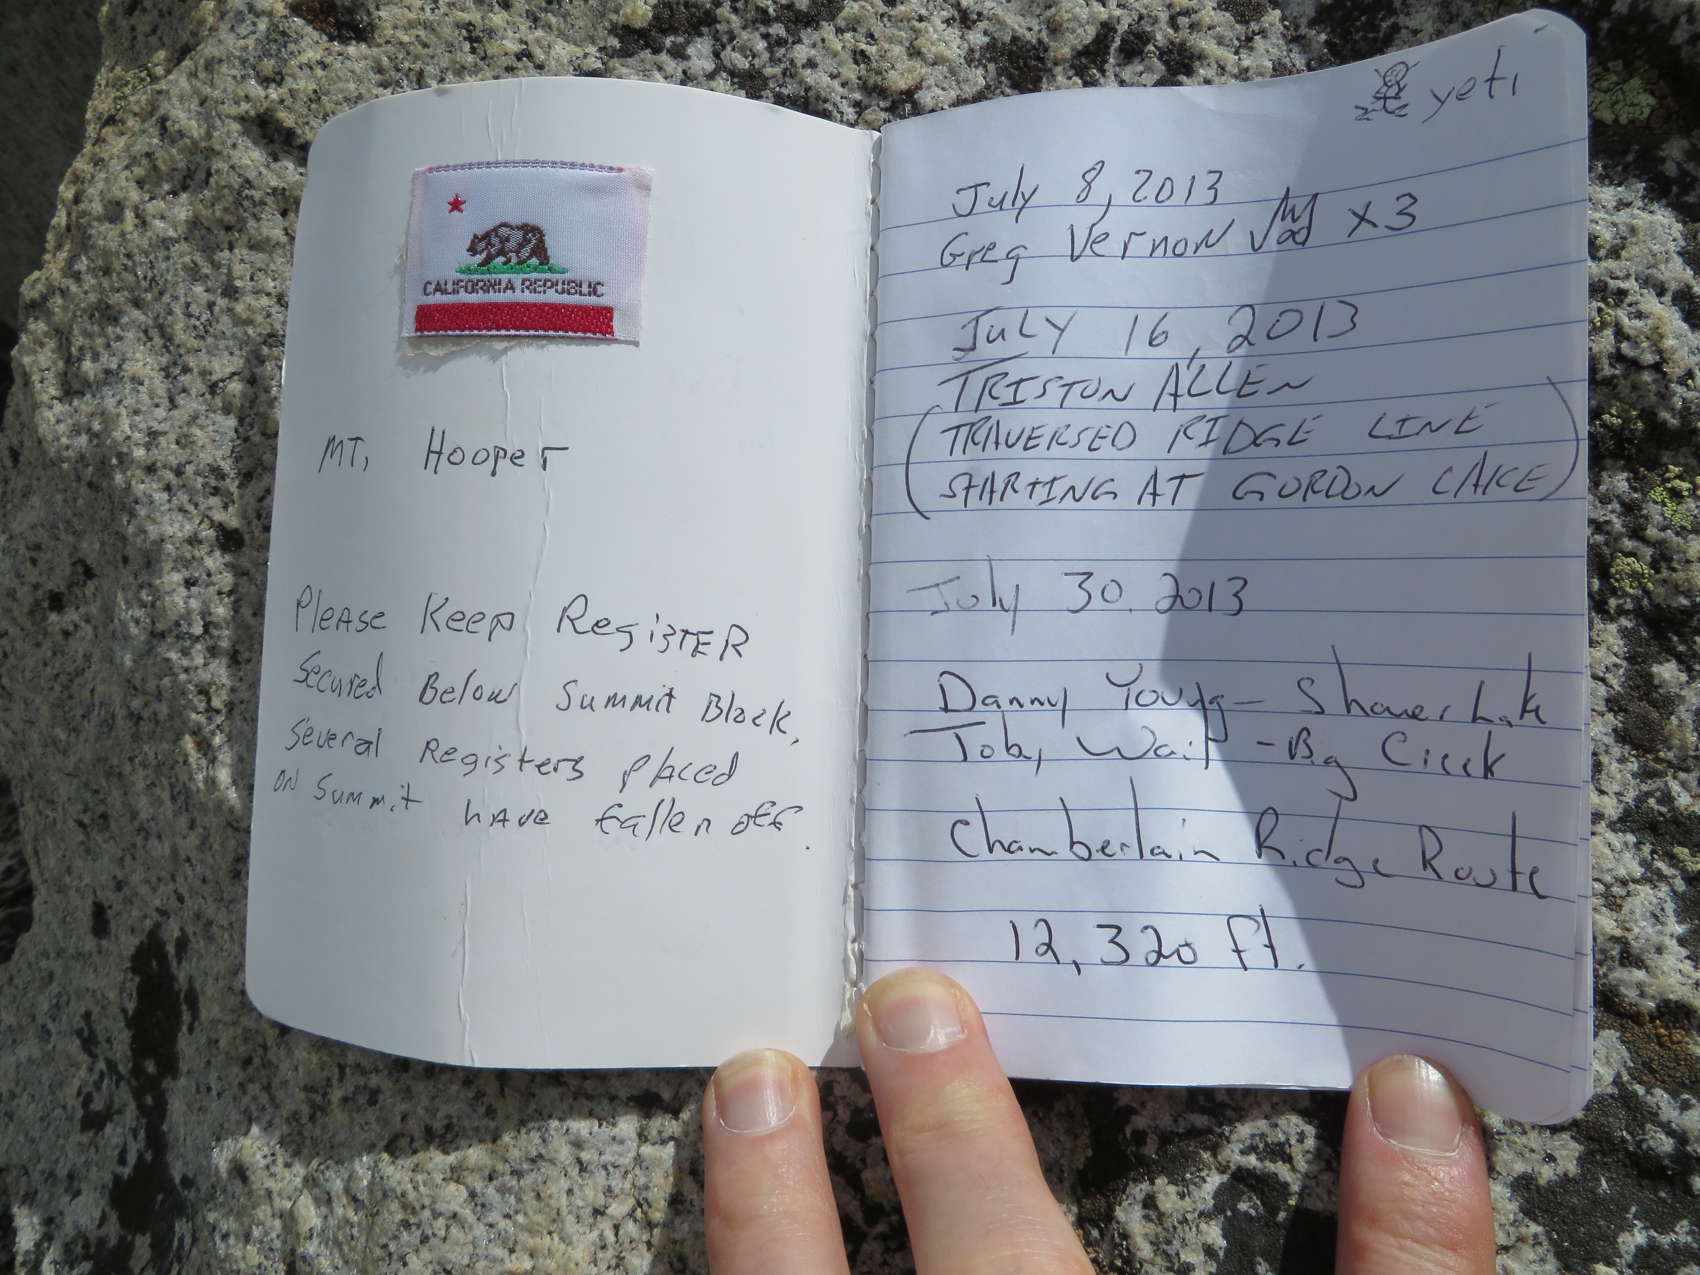 CALIFORNIA REPUBLIC
MT. Hooper
Please Keep Register
secured Below Summit Block,
several Registers placed
on summit have fallen off.
yeti
July 8, 2013
Greg Vernon x3
July 16, 2013
TRISTON ALLEN
(TRAVERSED RIDGE LINE
STARTING AT GORDON LAKE)
July 30, 2013
Danny Young - Shaver Lake
Toby Wait - Big Creek
Chamberlain Ridge Route
12,320 ft.